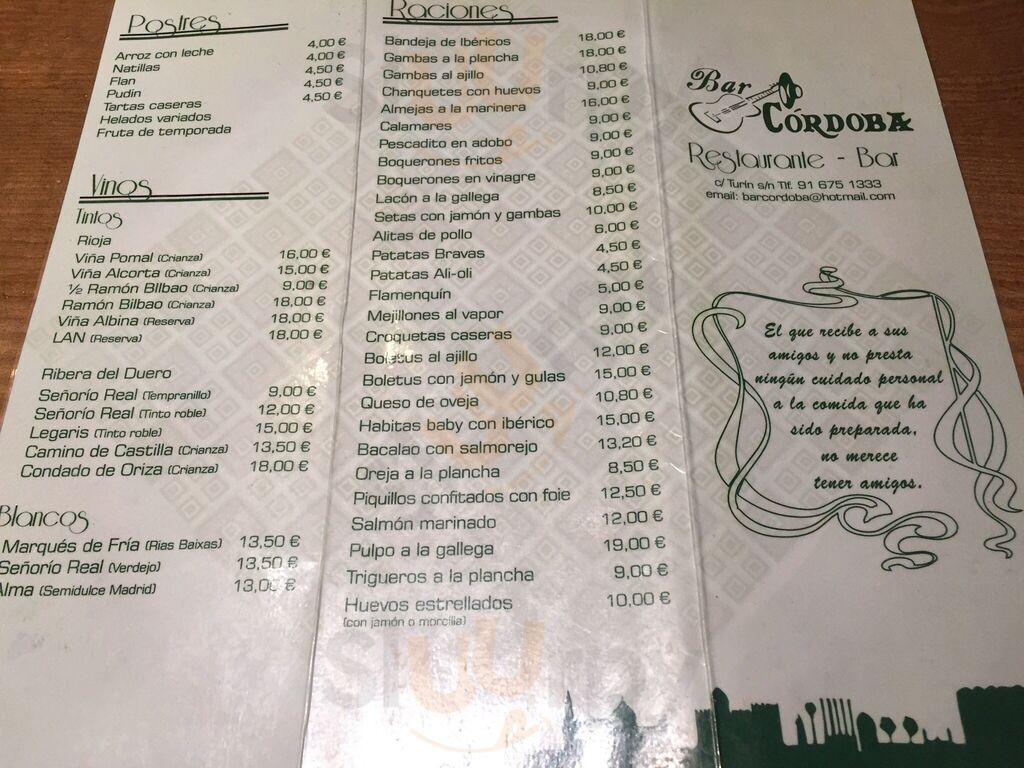 Postres
Arroz con leche 4,00 €
Natillas 4,00 €
Flan 4,50 €
Pudin 4,50 €
Tartas caseras 4,50 €
Helados variados
Fruta de temporada
Vinos
Tintos
Rioja
Viña Pomal (Crianza) 16,00 €
Viña Alcorta (Crianza) 15,00 €
½ Ramón BIlbao (Crianza) 9,00 €
Ramón Bilbao (Crianza) 18,00 €
Viña Albina (Reserva) 18,00 €
LAN (Reserva) 18,00 €
Ribera del Duero
Señorío Real (Tempranillo) 9,00 €
Señorío Real (Tinto roble) 12,00 €
Legaris (Tinto roble) 15,00 €
Camino de Castilla (Crianza) 13,50 €
Condado de Oriza (Crianza) 18,00 €
Blancos
Marqués de Fría (Rias Baixas) 13,50 €
Señorío Real (Verdejo) 13,50 €
Alma (Semidulce Madrid) 13,00 €
Raciones
Bandeja de Ibéricos 18,00 €
Gambas a la plancha 18,00 €
Gambas al ajillo 10,80 €
Chanquetes con huevos 9,00 €
Almejas a la marinera 16,00 €
Calamares 9,00 €
Pescadito en adobo 9,00 €
Boquerones fritos 9,00 €
Boquerones en vinagre 9,00 €
Lacón a la gallega 8,50 €
Setas con jamón y gambas 10,00 €
Alitas de pollo 6,00 €
Patatas Bravas 4,50 €
Patatas Ali-oli 4,50 €
Flamenquín 5,00 €
Mejillones al vapor 9,00 €
Croquetas caseras 9,00 €
Boletus al ajillo 12,00 €
Boletus con jamón y gulas 15,00 €
Queso de oveja 10,80 €
Habitas baby con ibérico 15,00 €
Bacalao con salmorejo 13,20 €
Oreja a la plancha 8,50 €
Piquillos confitados con foie 12,50 €
Salmón marinado 12,00 €
Pulpo a la gallega 19,00 €
Trigueros a la plancha 9,00 €
Huevos estrellados 10,00 €
(con jamón o morcilla)
Bar
CÓRDOBA
Restaurante - Bar
c/ Turín s/n Tlf. 91 675 1333
email: barcordoba@hotmail.com
El que recibe a sus
amigos y no presta
ningún cuidado personal
a la comida que ha
sido preparada,
no merece
tener amigos.